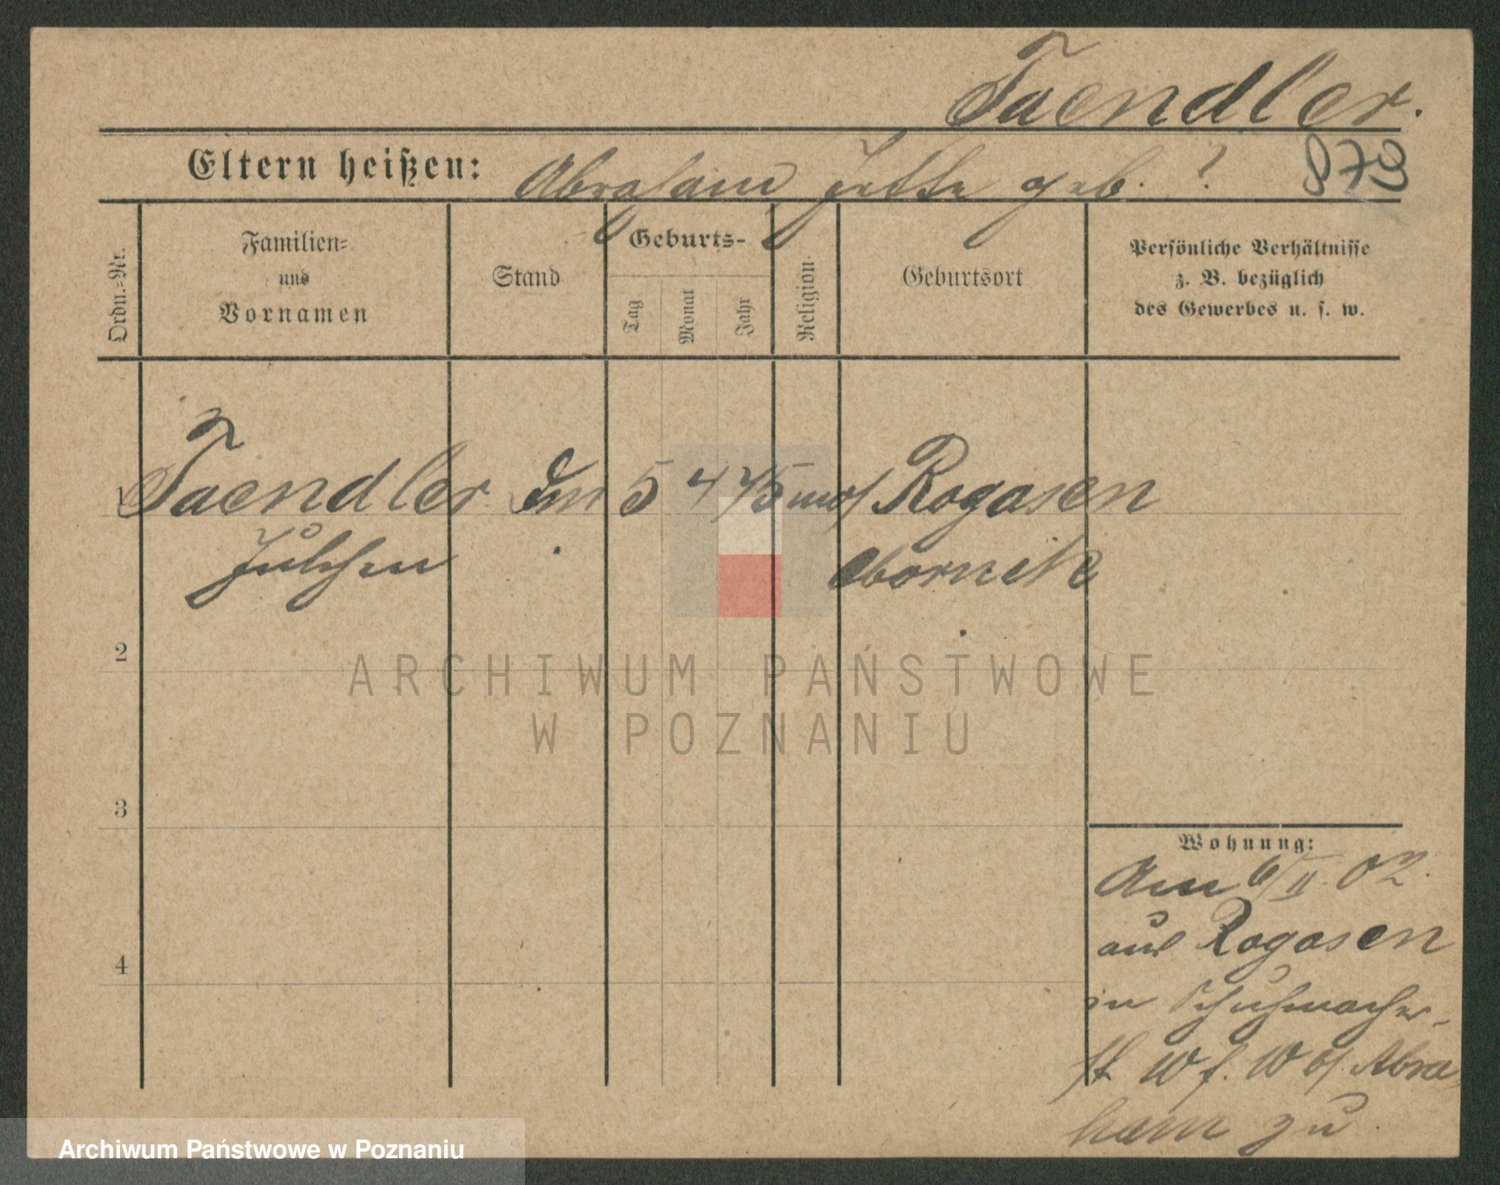 Taendler.
Eltern heißen: Abraham Jette geb. ?
873
Ordn.-Nr.
Familien-
und
Vornamen
Stand
Geburts-
Tag
Monat
Jahr
Religion
Geburtsort
Persönliche Verhältnisse
z. B. bezüglich
des Gewerbes u. s. w.
1 Taendler 5 4 75 mos Rogasen
Julchen Obornik
2
3
4
Wohnung:
Am 6/II. 02.
aus Rogasen
in Schuhmacher-
W b/ Abra
ham zu.
ARCHIWUM PAŃSTWOWE
W POZNANIU
Archiwum Państwowe w Poznaniu